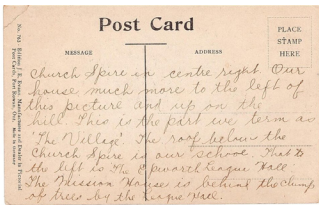 Post Card
PLACE
STAMP
HERE
MESSAGE
ADDRESS
Church Spire in centre right. Our
house much more to the left of
this picture and up on the
hill. This is the part we term as
'The Village'. The roof below the
Church Spire is our school. That to
the left is The Epworth League Hall
The Mission House is behind the clump
of trees by the League Hall.